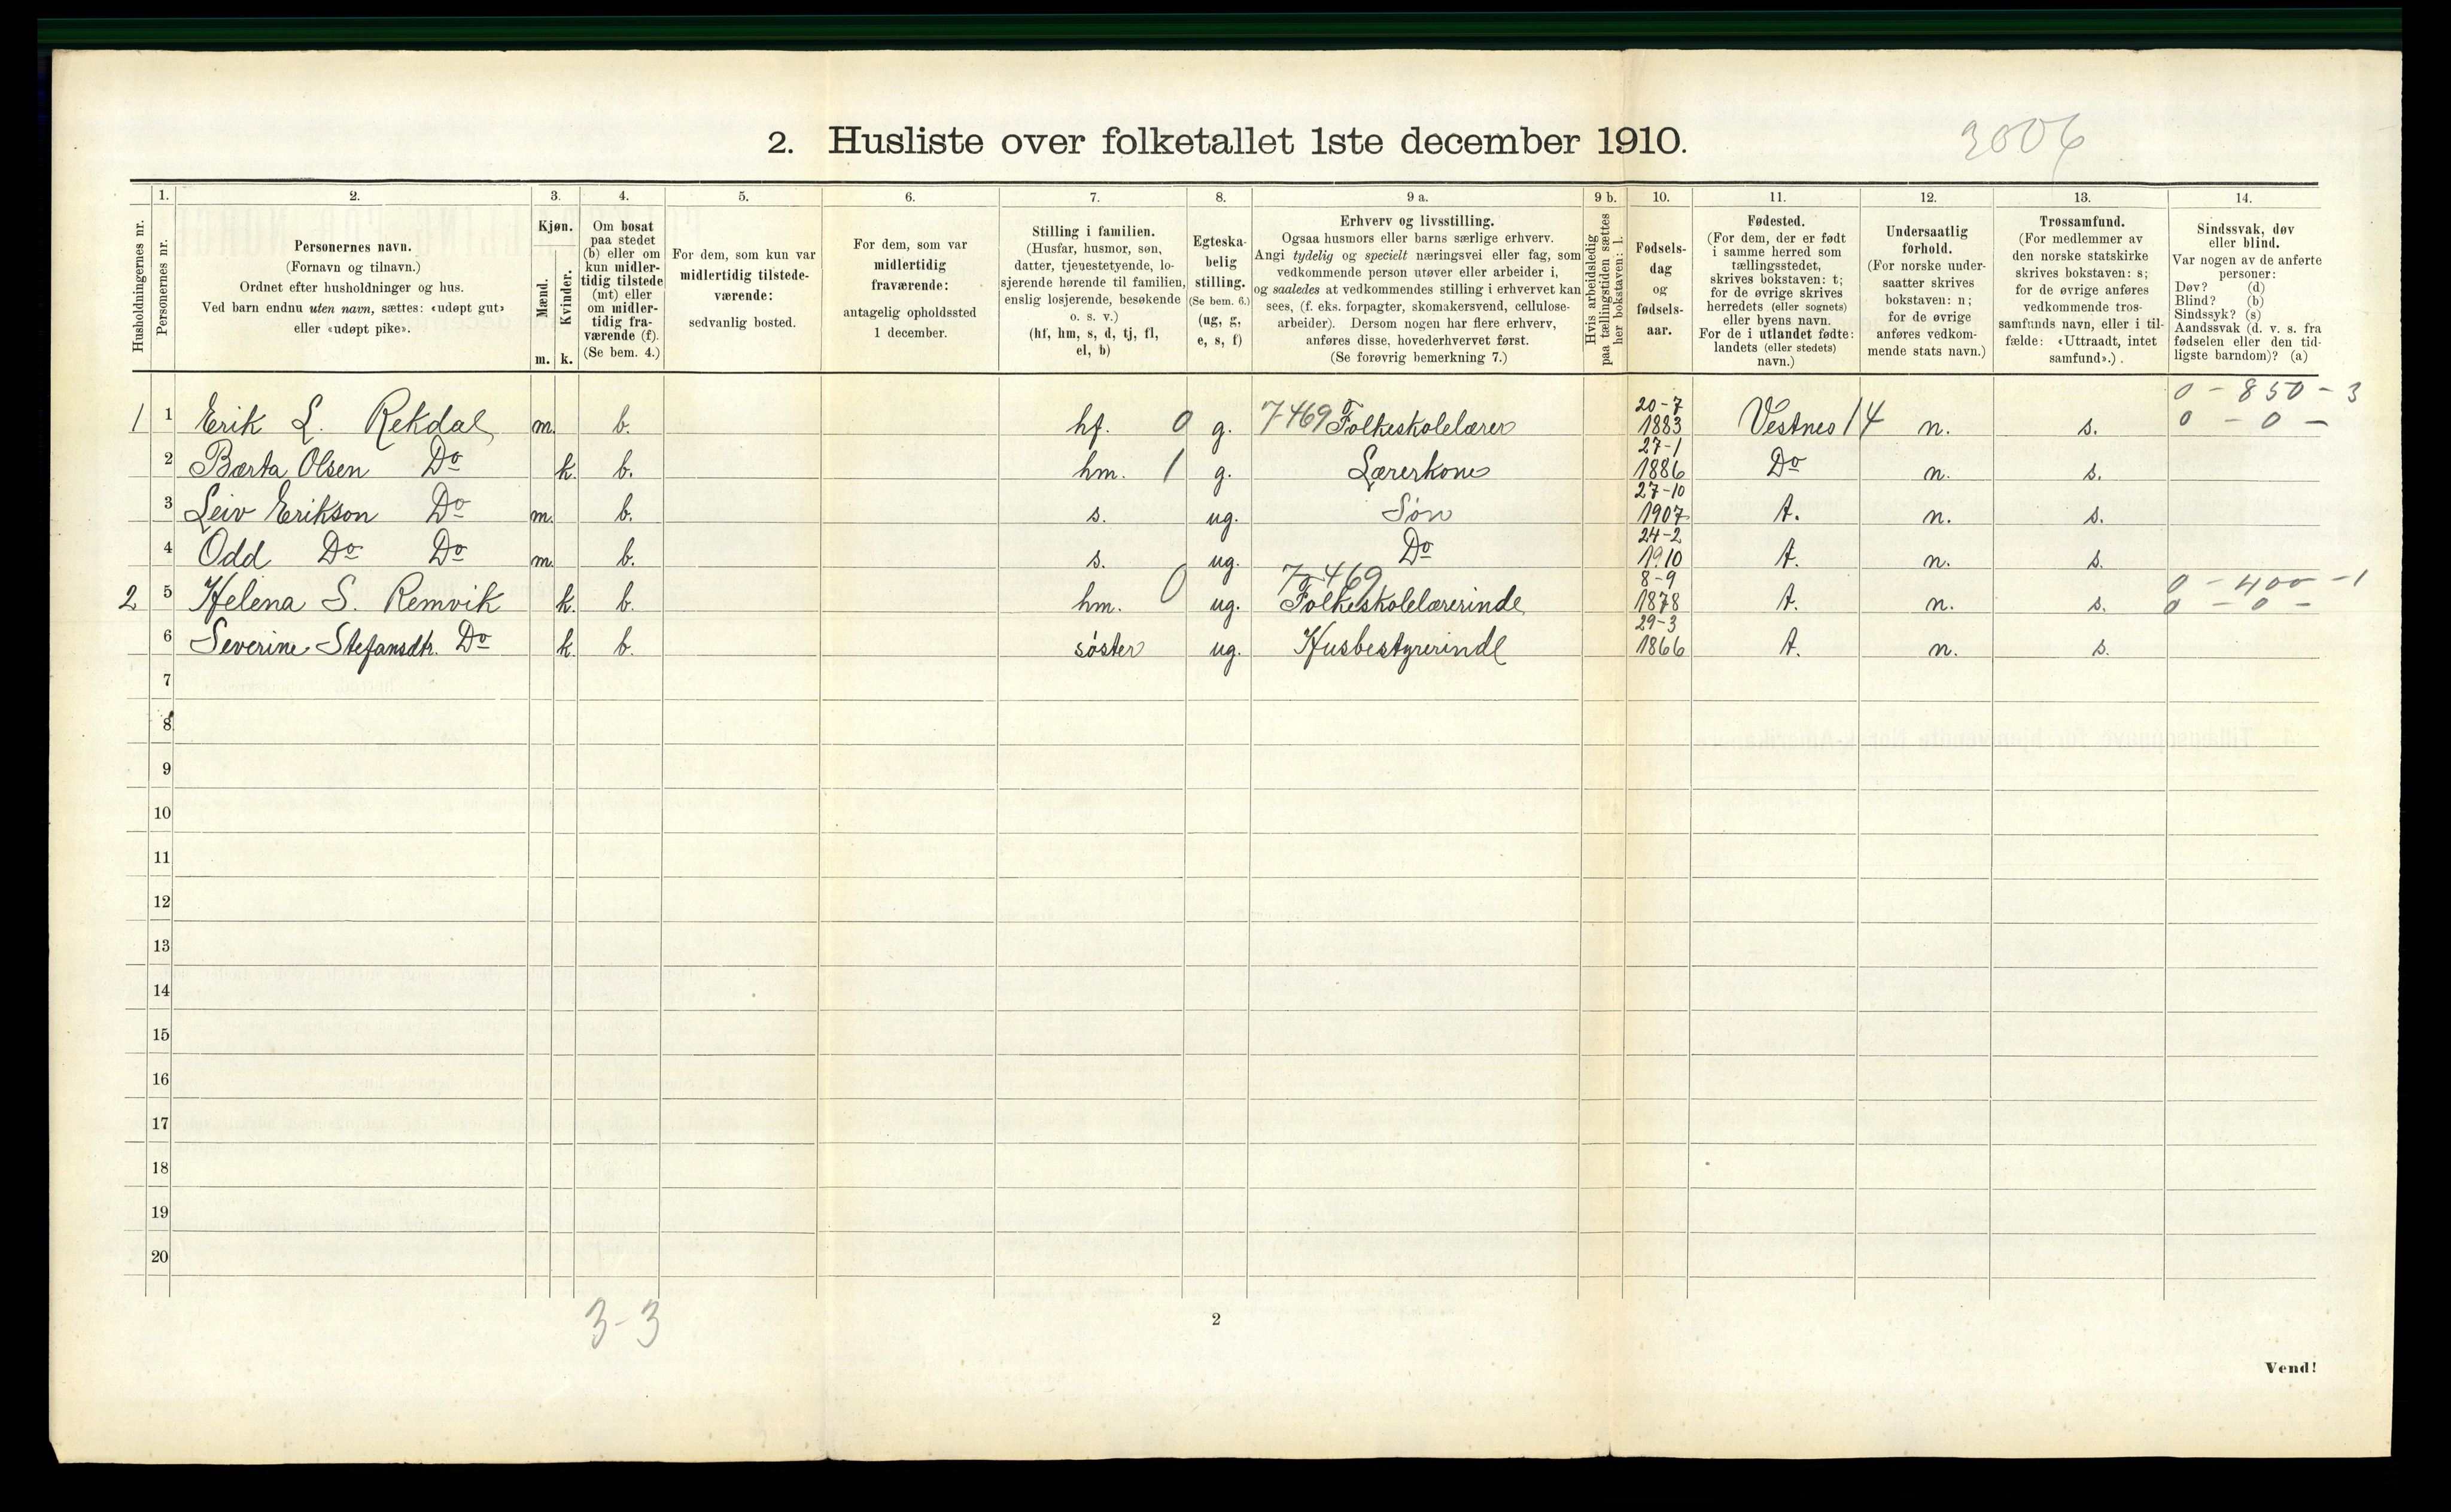 2. Husliste over folketallet 1ste december 1910.
3006
Husholdningernes nr.
1.
Personernes nr.
2.
Personernes navn.
(Fornavn og tilnavn.)
Ordnet efter husholdninger og hus.
Ved barn endnu uten navn, sættes: «udøpt gut»
eller «udøpt pike».
3.
Kjøn.
Mænd.
m.
Kvinder.
k.
4.
Om bosat
paa stedet
(b) eller om
kun midler-
tidig tilstede
(mt) eller
om midler-
tidig fra-
værende (f).
(Se bem. 4.)
5.
For dem, som kun var
midlertidig tilstede-
værende:
sedvanlig bosted.
6.
For dem, som var
midlertidig
fraværende:
antagelig opholdssted
1 december.
7.
Stilling i familien.
(Husfar, husmor, søn,
datter, tjenestetyende, lo-
sjerende hørende til familien,
enslig losjerende, besøkende
o. s. v.)
(hf, hm, s, d, tj, fl,
el, b)
8.
Egteska-
belig
stilling.
(Se bem. 6.)
(ug, g,
e, s, f)
9 a.
Erhverv og livsstilling.
Ogsaa husmors eller barns særlige erhverv.
Angi tydelig og specielt næringsvei eller fag, som
vedkommende person utøver eller arbeider i,
og saaledes at vedkommendes stilling i erhvervet kan
sees, (f. eks. forpagter, skomakersvend, cellulose-
arbeider). Dersom nogen har flere erhverv,
anføres disse, hovederhvervet først.
(Se forøvrig bemerkning 7.)
9 b.
Hvis arbeidsledig
paa tællingstiden sættes
her bokstaven: l.
10.
Fødsels-
dag
og
fødsels-
aar.
11.
Fødested.
(For dem, der er født
i samme herred som
tællingsstedet,
skrives bokstaven: t;
for de øvrige skrives
herredets (eller sognets)
eller byens navn.
For de i utlandet fødte:
landets (eller stedets)
navn.)
12.
Undersaatlig
forhold.
(For norske under-
saatter skrives
bokstaven: n;
for de øvrige
anføres vedkom-
mende stats navn.)
13.
Trossamfund.
(For medlemmer av
den norske statskirke
skrives bokstaven: s;
for de øvrige anføres
vedkommende tros-
samfunds navn, eller i til-
fælde: «Uttraadt, intet
samfund».)
14.
Sindssvak, døv
eller blind.
Var nogen av de anførte
personer:
Døv? (d)
Blind? (b)
Sindssyk? (s)
Aandssvak (d. v. s. fra
fødselen eller den tid-
ligste barndom)? (a)
0 - 850 - 3
1 1 Erik L. Rekdal m. b. hf. 0 g. 7469 Folkeskolelærer 20-7 1883 Vestnes 14 n. s. 0 - 0 -
2 Bærta Olsen Do k. b. hm. 1 g. Lærerkone 27-1 1886 Do n. s.
3 Leiv Erikson Do m. b. s. ug. Søn 27-10 1907 t. n. s.
4 Odd Do Do m. b. s. ug. Do 24-2 1910 t. n. s.
7469 0 - 400 - 1
2 5 Helena S. Remvik k. b. hm. 0 ug. Folkeskolelærerinde 8-9 1878 t. n. s. 0 - 0 -
6 Severine Stefansdtr. Do k. b. søster ug. Husbestyrerinde 29-3 1866 t. n. s.
7
8
9
10
11
12
13
14
15
16
17
18
19
20
3-3
2
Vend!